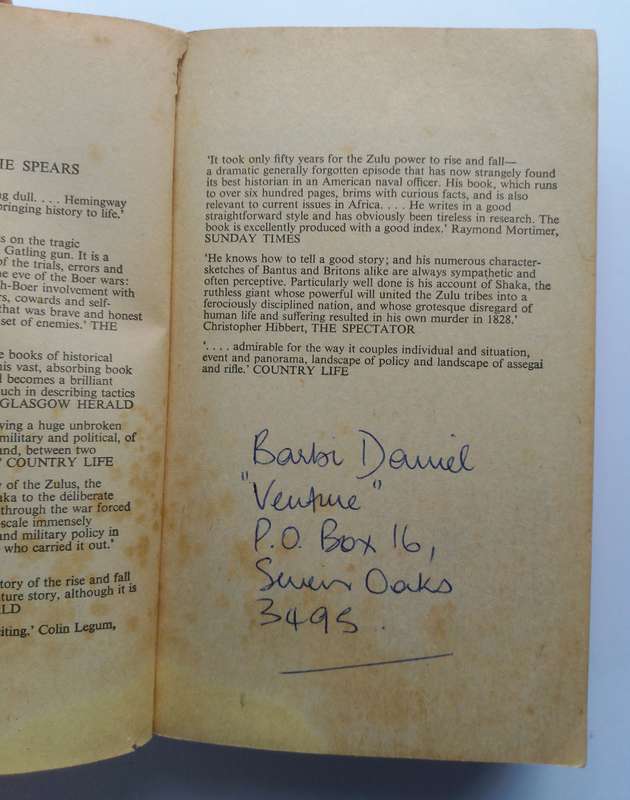 HE SPEARS
ng dull. . . . Hemingway
bringing history to life.'
rs on the tragic
Gatling gun. It is a
of the trials, errors and
he eve of the Boer wars:
sh-Boer involvement with
rs, cowards and self-
that was brave and honest
set of enemies.' THE
e books of historical
his vast, absorbing book
d becomes a brilliant
uch in describing tactics
GLASGOW HERALD
ving a huge unbroken
military and political, of
and, between two
' COUNTRY LIFE
y of the Zulus, the
aka to the deliberate
through the war forced
-scale immensely
and military policy in
who carried it out.'
tory of the rise and fall
ture story, although it is
LD
citing.' Colin Legum,
'It took only fifty years for the Zulu power to rise and fall—
a dramatic generally forgotten episode that has now strangely found
its best historian in an American naval officer. His book, which runs
to over six hundred pages, brims with curious facts, and is also
relevant to current issues in Africa. . . . He writes in a good
straightforward style and has obviously been tireless in research. The
book is excellently produced with a good index.' Raymond Mortimer,
SUNDAY TIMES
'He knows how to tell a good story; and his numerous character-
sketches of Bantus and Britons alike are always sympathetic and
often perceptive. Particularly well done is his account of Shaka, the
ruthless giant whose powerful will united the Zulu tribes into a
ferociously disciplined nation, and whose grotesque disregard of
human life and suffering resulted in his own murder in 1828.'
Christopher Hibbert, THE SPECTATOR
'. . . . admirable for the way it couples individual and situation,
event and panorama, landscape of policy and landscape of assegai
and rifle.' COUNTRY LIFE
Barbi Daniel
"Venture"
P.O. Box 16,
Seven Oaks
3495.